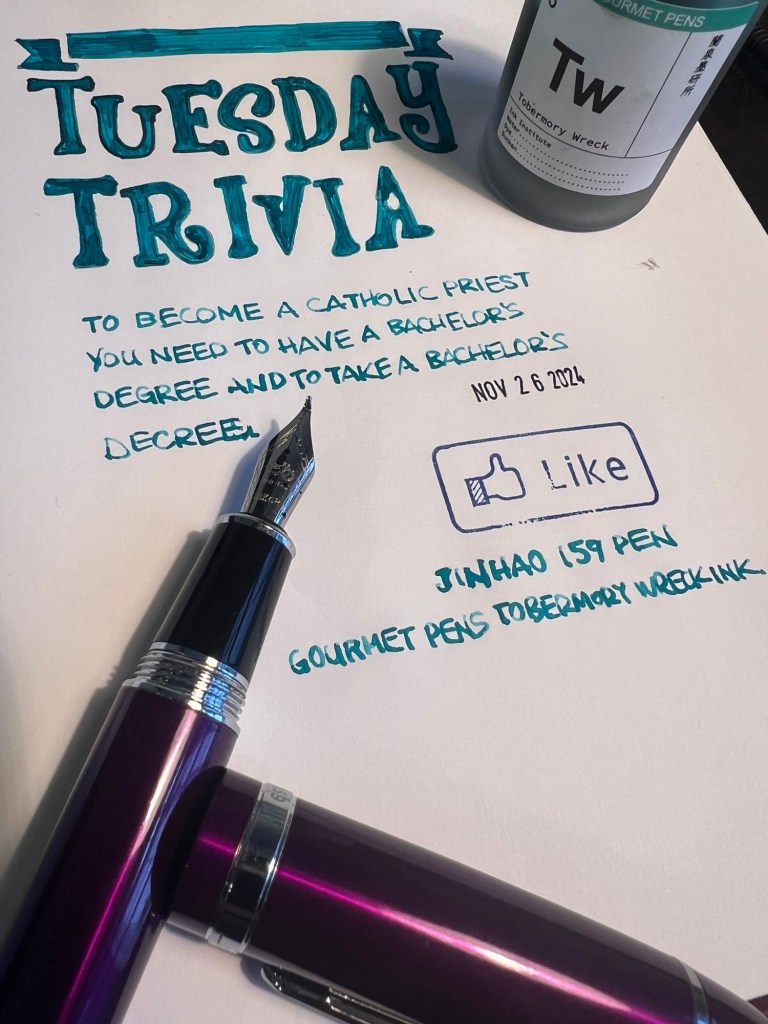 TUESDAY
TRIVIA
TO BECOME A CATHOLIC PRIEST
YOU NEED TO HAVE A BACHELOR'S
DEGREE AND TO TAKE A BACHELOR'S
DECREE.
NOV 26 2024
Like
JINHAO 159 PEN
GOURMET PENS TOBERMORY WRECK INK
GOURMET PENS
Tw
Tobermory Wreck
Ink Institute